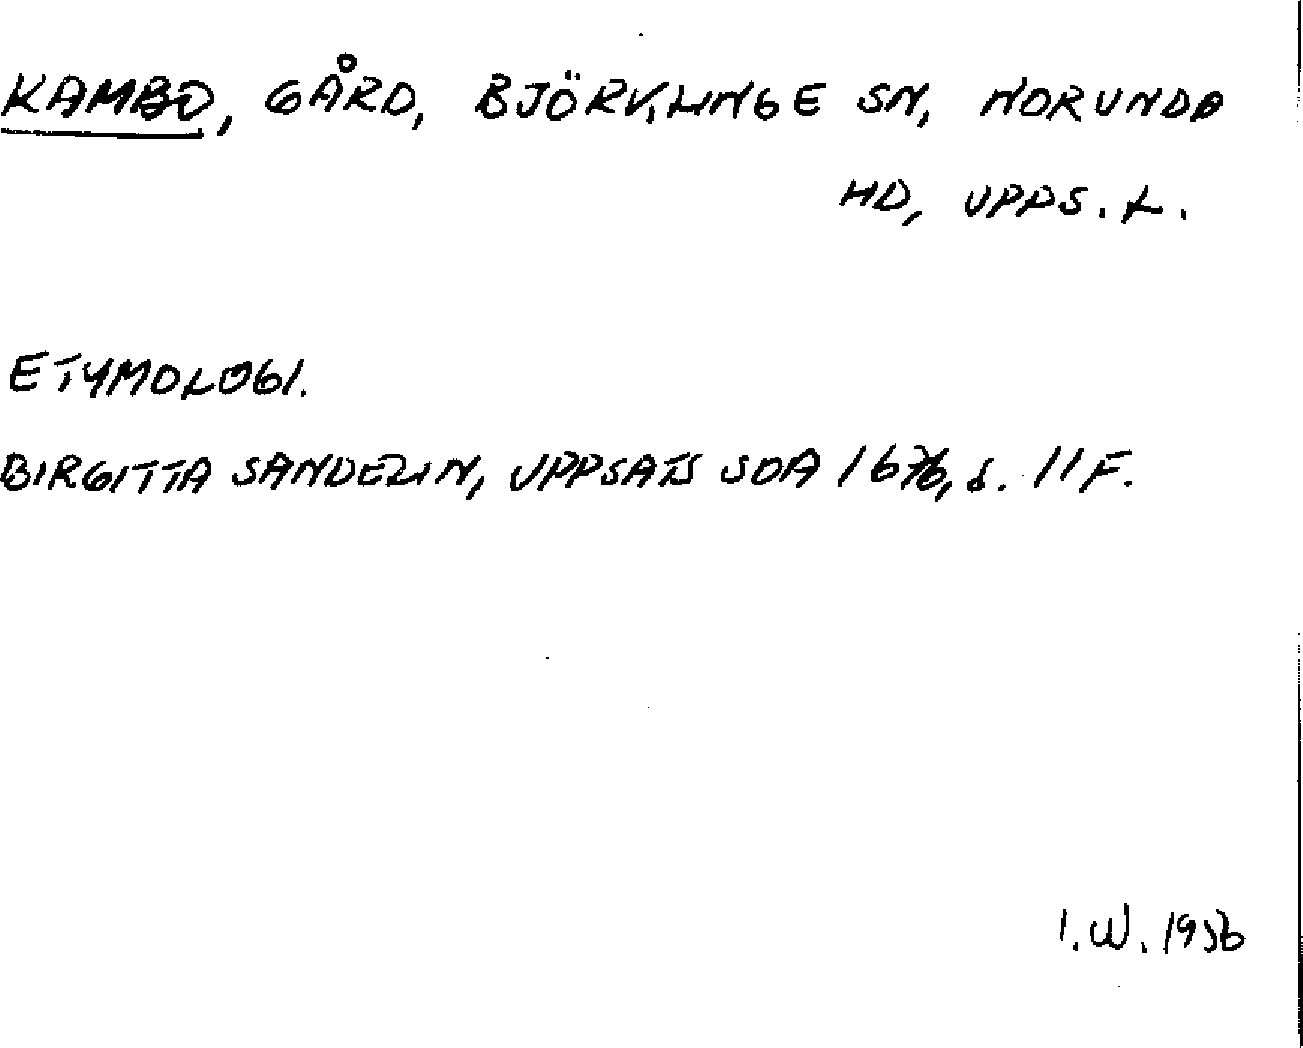 KAMBO, GÅRD, BJÖRKLINGE SN, NORUNDA
HD, UPPS. L.
ETYMOLOGI.
BIRGITTA SANDELIN, UPPSATS SOA 1676, S. 11 F.
I.W. 1956